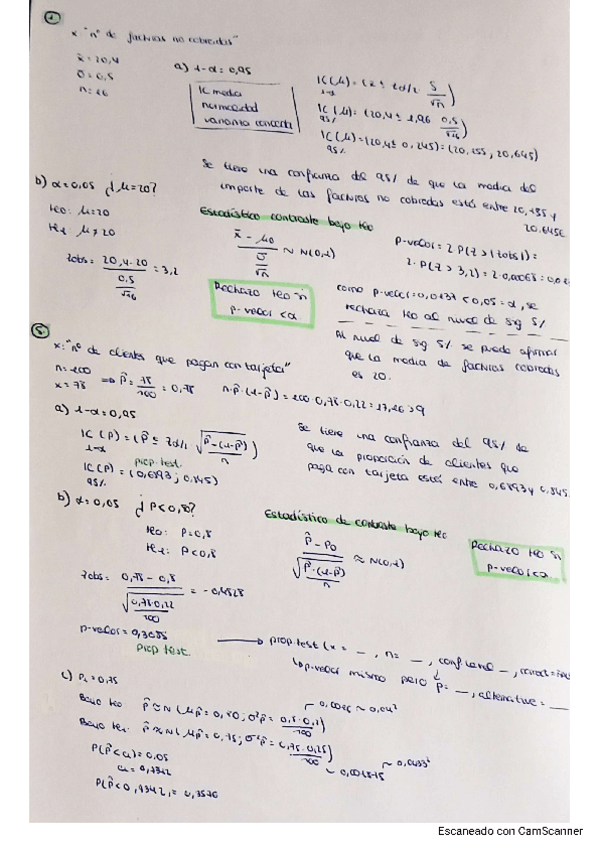 1.
x "nº de facturas no cobradas"
x̄ = 20,4
σ = 0,5
n = 16
a) 1-α = 0,95
IC media
normalidad
varianza conocida
IC(μ) = (x̄ ± zα/2 S/√n)
1-α
IC(μ) = (20,4 ± 1,96 0,5/√16)
95%
IC(μ) = (20,4 ± 0,245) = (20,155, 20,645)
95%
Se tiene una confianza del 95% de que la media del
importe de las facturas no cobradas está entre 20,155 y
20,645€
b) α = 0,05 ¿μ = 20?
H0: μ = 20
H1: μ ≠ 20
Estadístico contraste bajo H0
x̄ - μ0 / σ/√n ~ N(0,1)
zobs = 20,4 - 20 / 0,5/√16 = 3,2
p-valor = 2 P(Z > |zobs|) =
2·P(Z > 3,2) = 2·0,00068 =
Rechazo H0 si
p-valor < α
como p-valor = 0,0137 < 0,05 = α, se
rechaza H0 al nivel de sig 5%
Al nivel de sig 5% se puede afirmar
que la media de facturas cobradas
es 20.
5.
x: "nº de clientes que pagan con tarjeta"
n = 100
x = 78 ⇒ p̂ = 78/100 = 0,78 n·p̂·(1-p̂) = 100·0,78·0,22 = 17,16 > 9
a) 1-α = 0,95
IC(p) = (p̂ ± zα/2 √p̂-(1-p̂)/n)
1-α
prop.test
IC(p) = (0,6893; 0,845)
95%
Se tiene una confianza del 95% de
que la proporción de clientes que
paga con tarjeta está entre 0,6893 y 0,845
b) α = 0,05 ¿P < 0,8?
H0: P = 0,8
H1: P < 0,8
Estadístico de contraste bajo H0
p̂ - p0 / √p̂·(1-p̂)/n ≈ N(0,1)
Rechazo H0 si
p-valor < α
zobs = 0,78 - 0,8 / √0,78·0,22/100 = -0,4828
p-valor = 0,3085
prop.test.
→ prop.test(x = _, n = _, conf.level _, correct =
↳ p-valor mismo pero p = _, alternative = _
c) P1 = 0,75
Bajo H0 p̂ ≈ N(μp̂ = 0,80; σ²p̂ = 0,8·0,2/100)
Bajo H1: p̂ ≈ N(μp̂ = 0,75; σ²p̂ = 0,75·0,25/100)
→ 0,0433²
P(p̂ < c1) = 0,05
c1 = 0,7342
P(p̂ < 0,7342) = 0,3576
Escaneado con CamScanner